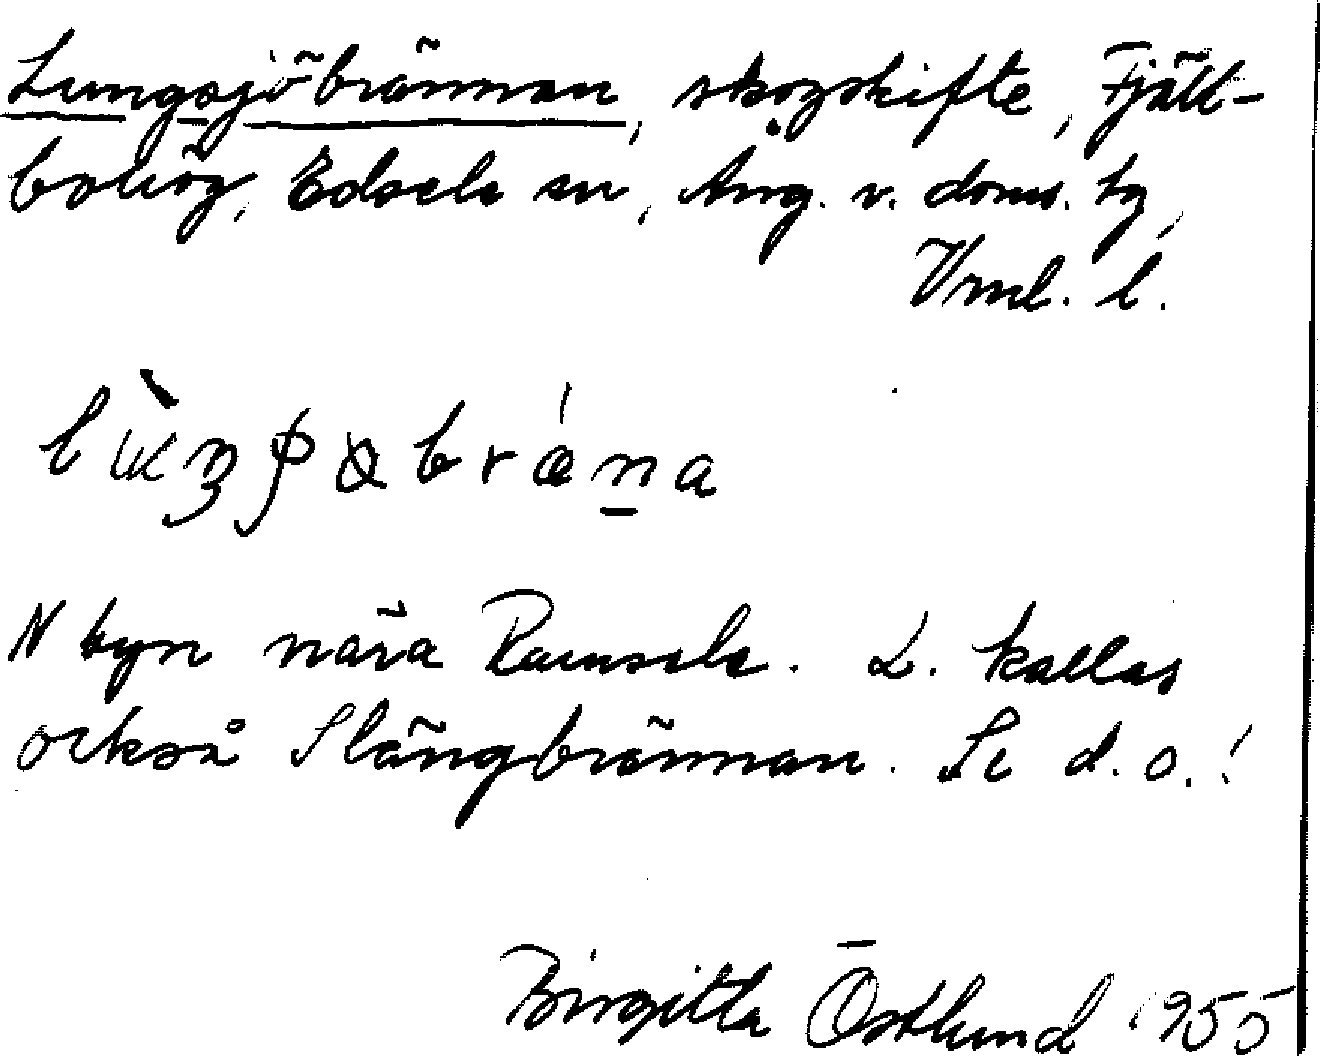 Lungsjöbrännan, skogskifte, Fjäll-
bohög, Edsele sn, Ång. v. doms. tg,
Vrnl. l.
N byn nära Ramsele. L. kallas
också Slängbrännan. Se d. o.!
Birgitta Östlund 1955